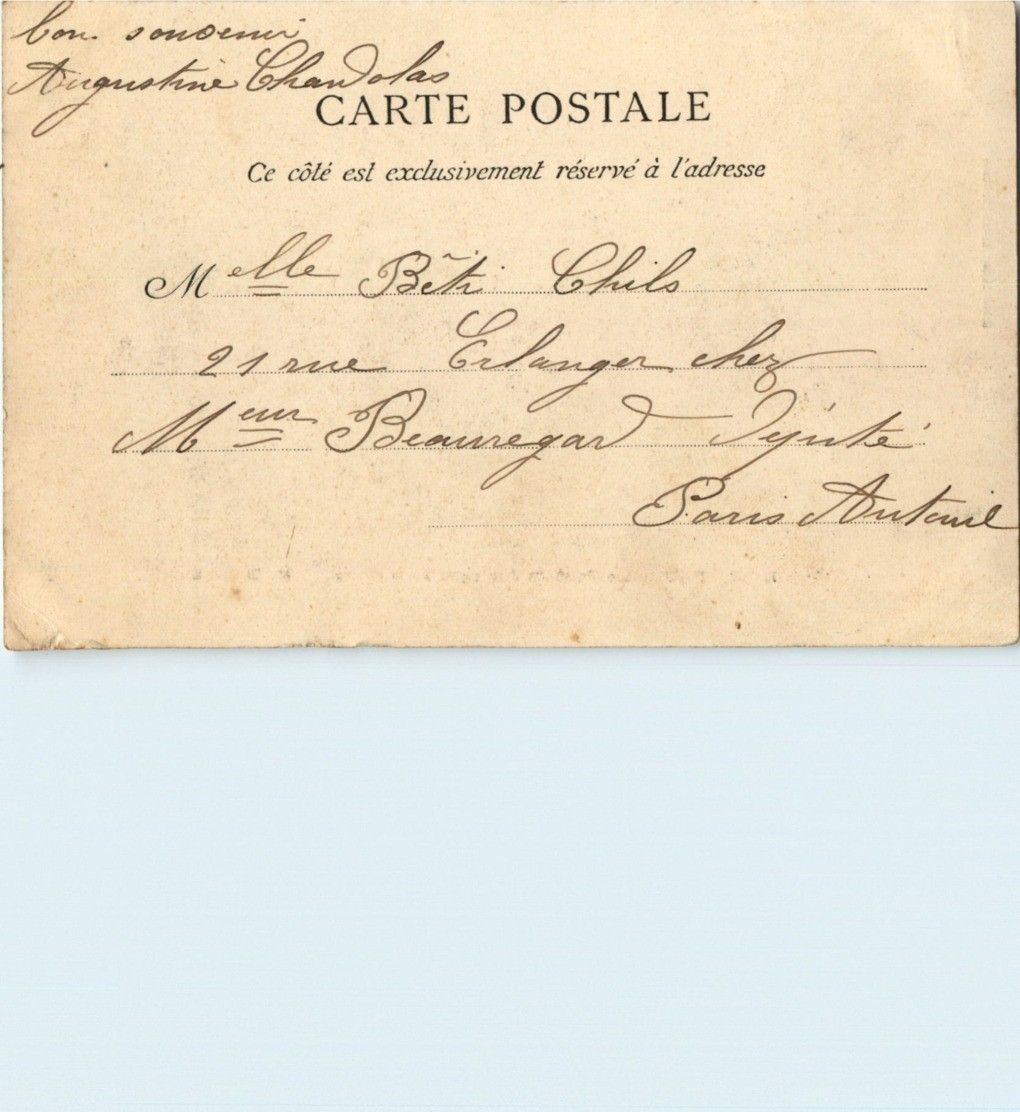 bon souvenir
Augustine Chandolas
CARTE POSTALE
Ce côté est exclusivement réservé à l'adresse
Melle Bêti Chils
21 rue Erlanger chez
Meur Beauregard Députe
Paris Auteuil